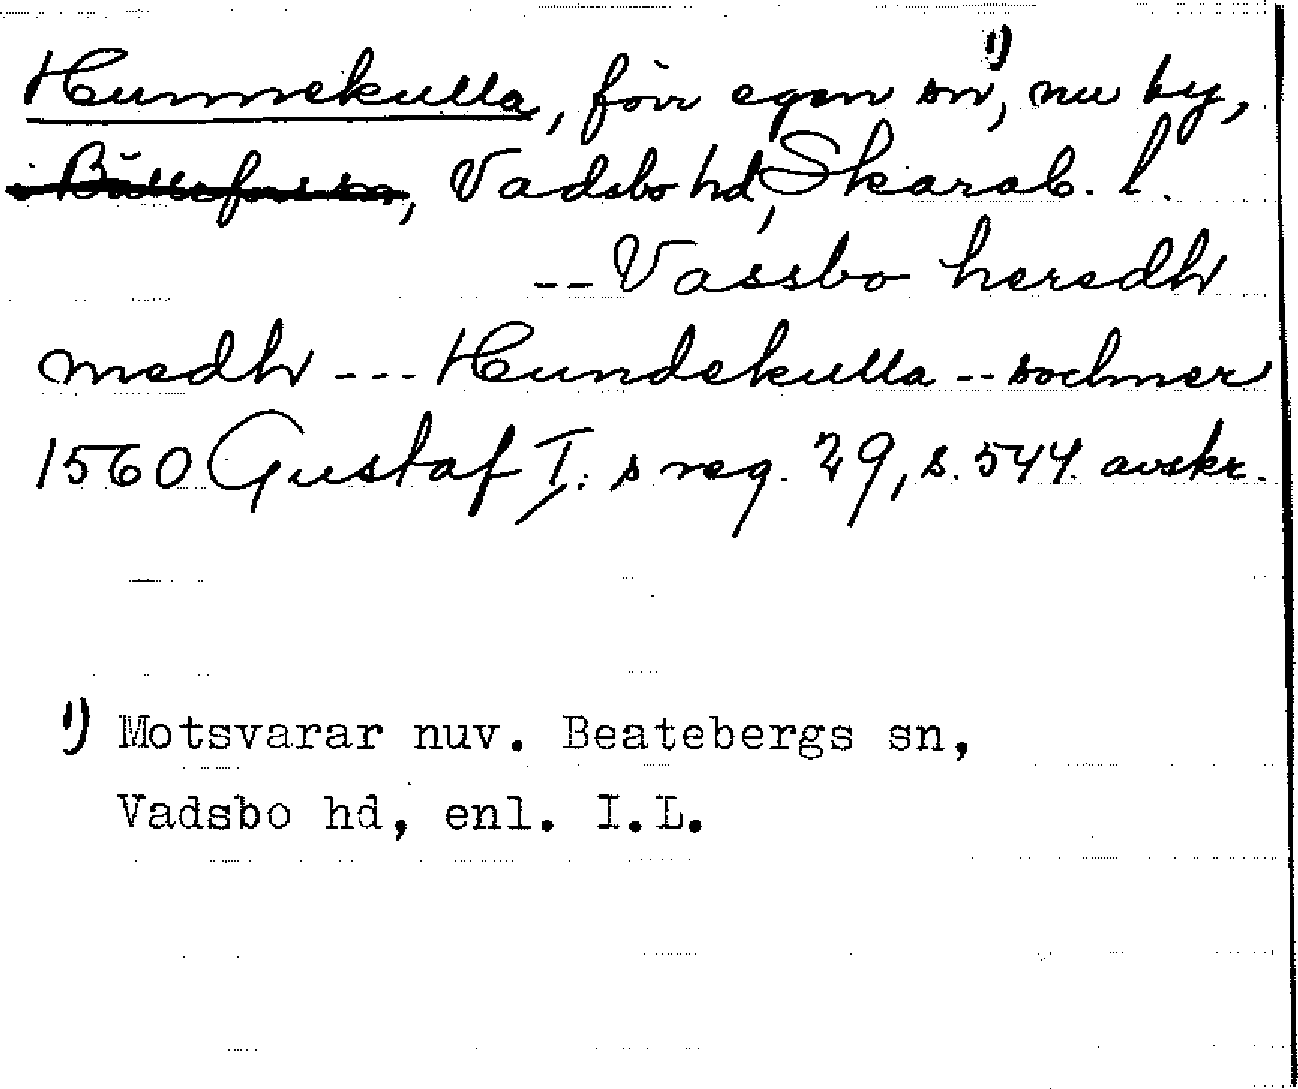 Hunnekulla, förr egen sn¹⁾, nu by,
i Bällefors sn, Vadsbo hd, Skarab. l.
-- Vassbo heredh
medh --- Hundekulla -- sochner
1560 Gustaf I:s reg. 29, s. 544. avskr.
1) Motsvarar nuv. Beatebergs sn,
Vadsbo hd, enl. I.L.